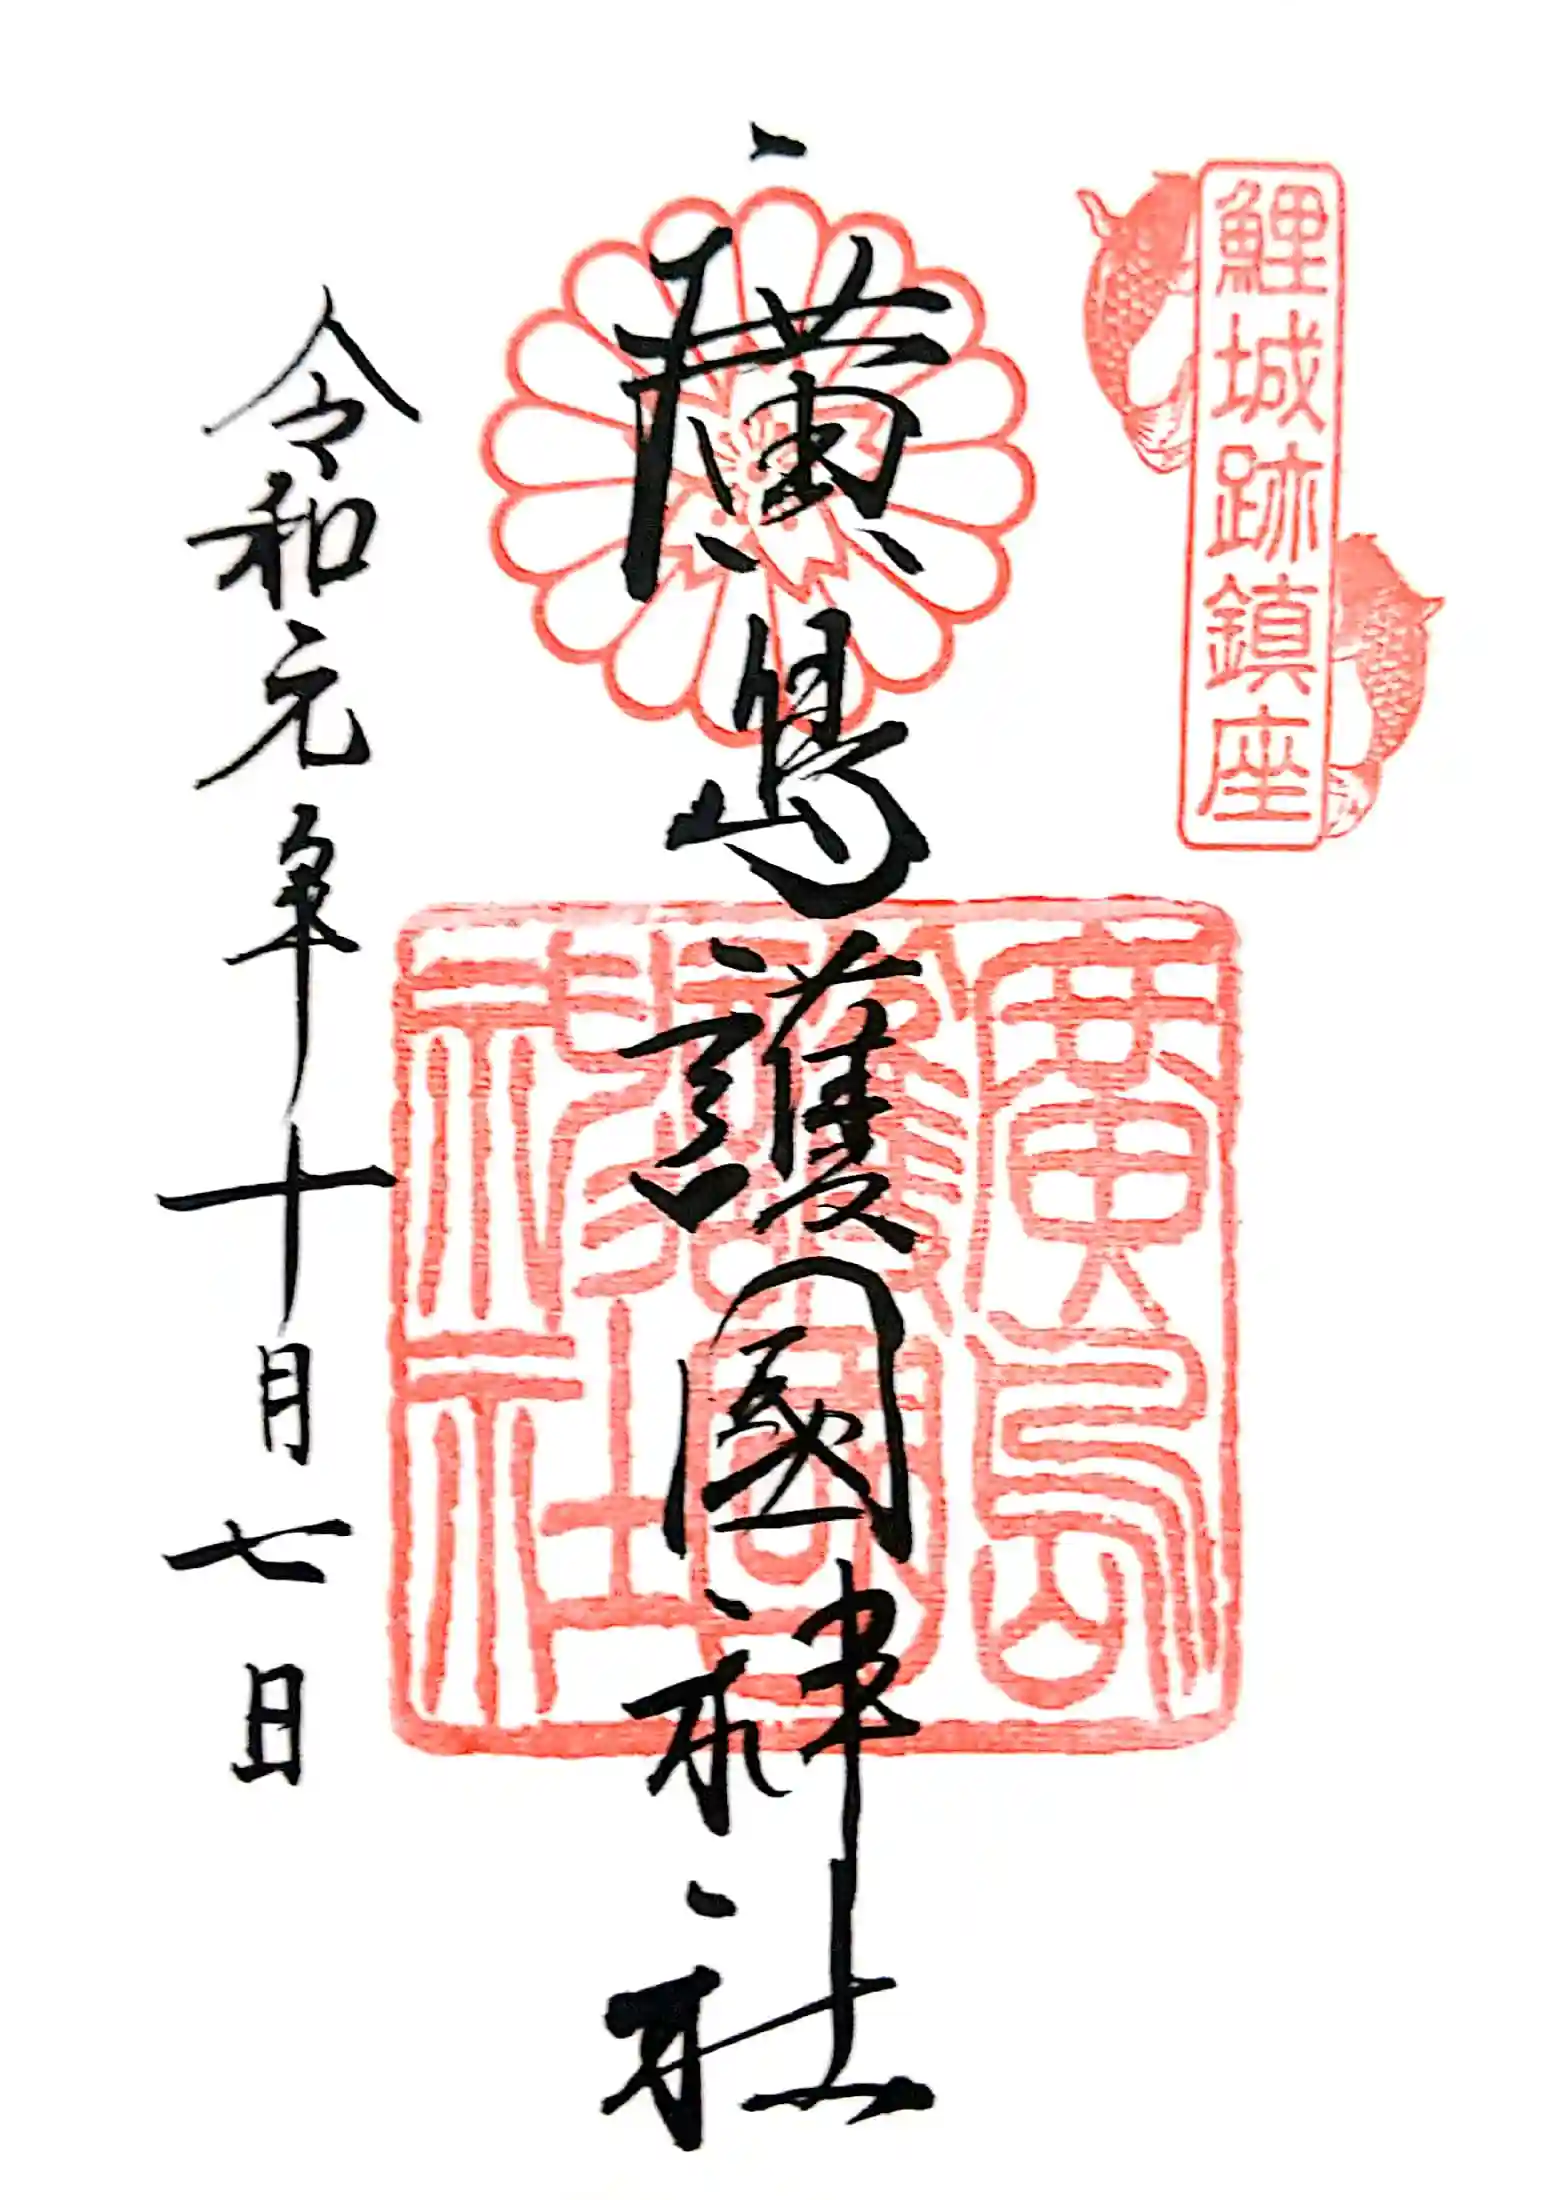 鯉城跡鎮座
廣島護國神社
廣島
護國
神社
令和元年十月七日